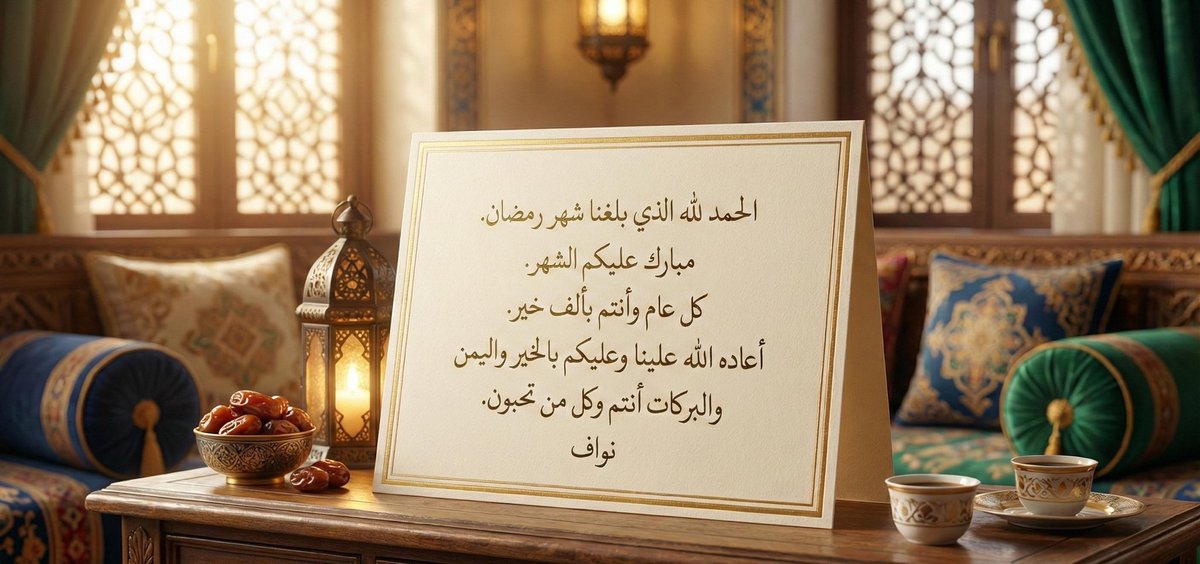 الحمد لله الذي بلغنا شهر رمضان.
مبارك عليكم الشهر.
كل عام وأنتم بألف خير.
أعاده الله علينا وعليكم بالخير واليمن
والبركات أنتم وكل من تحبون.
نواف